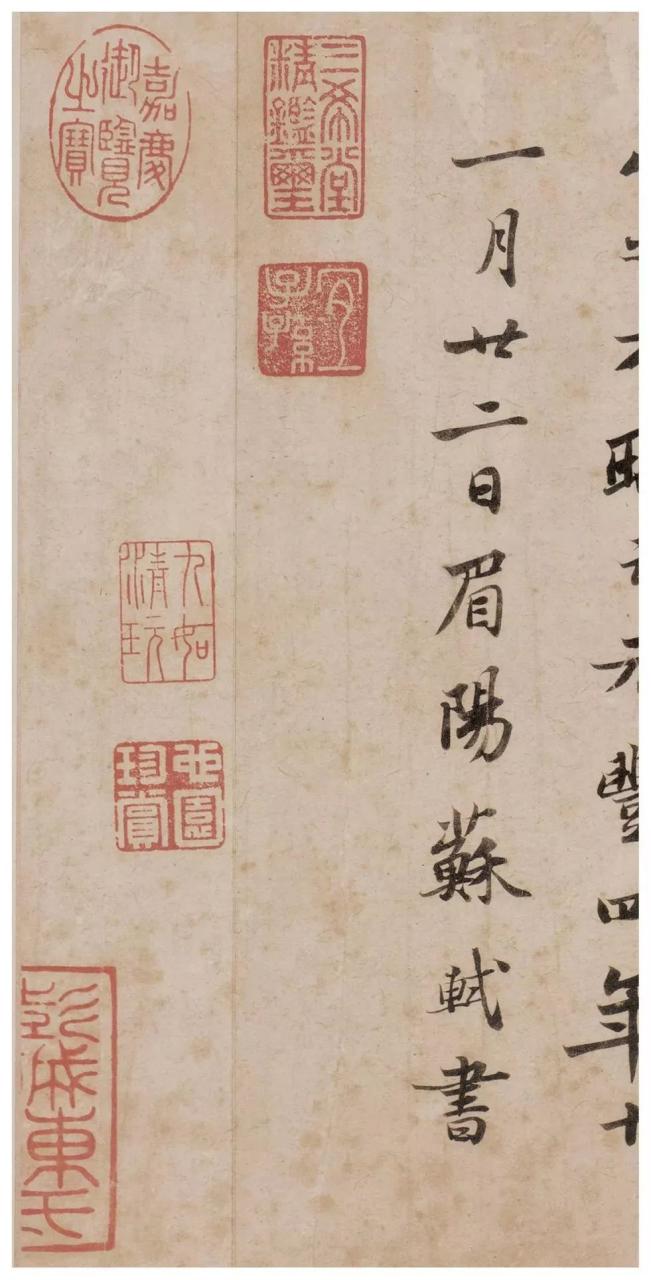 元豐四年十
一月廿二日眉陽蘇軾書
三希堂精鑑璽
宜子孫
嘉慶御覽之寶
九如清玩
也園珍賞